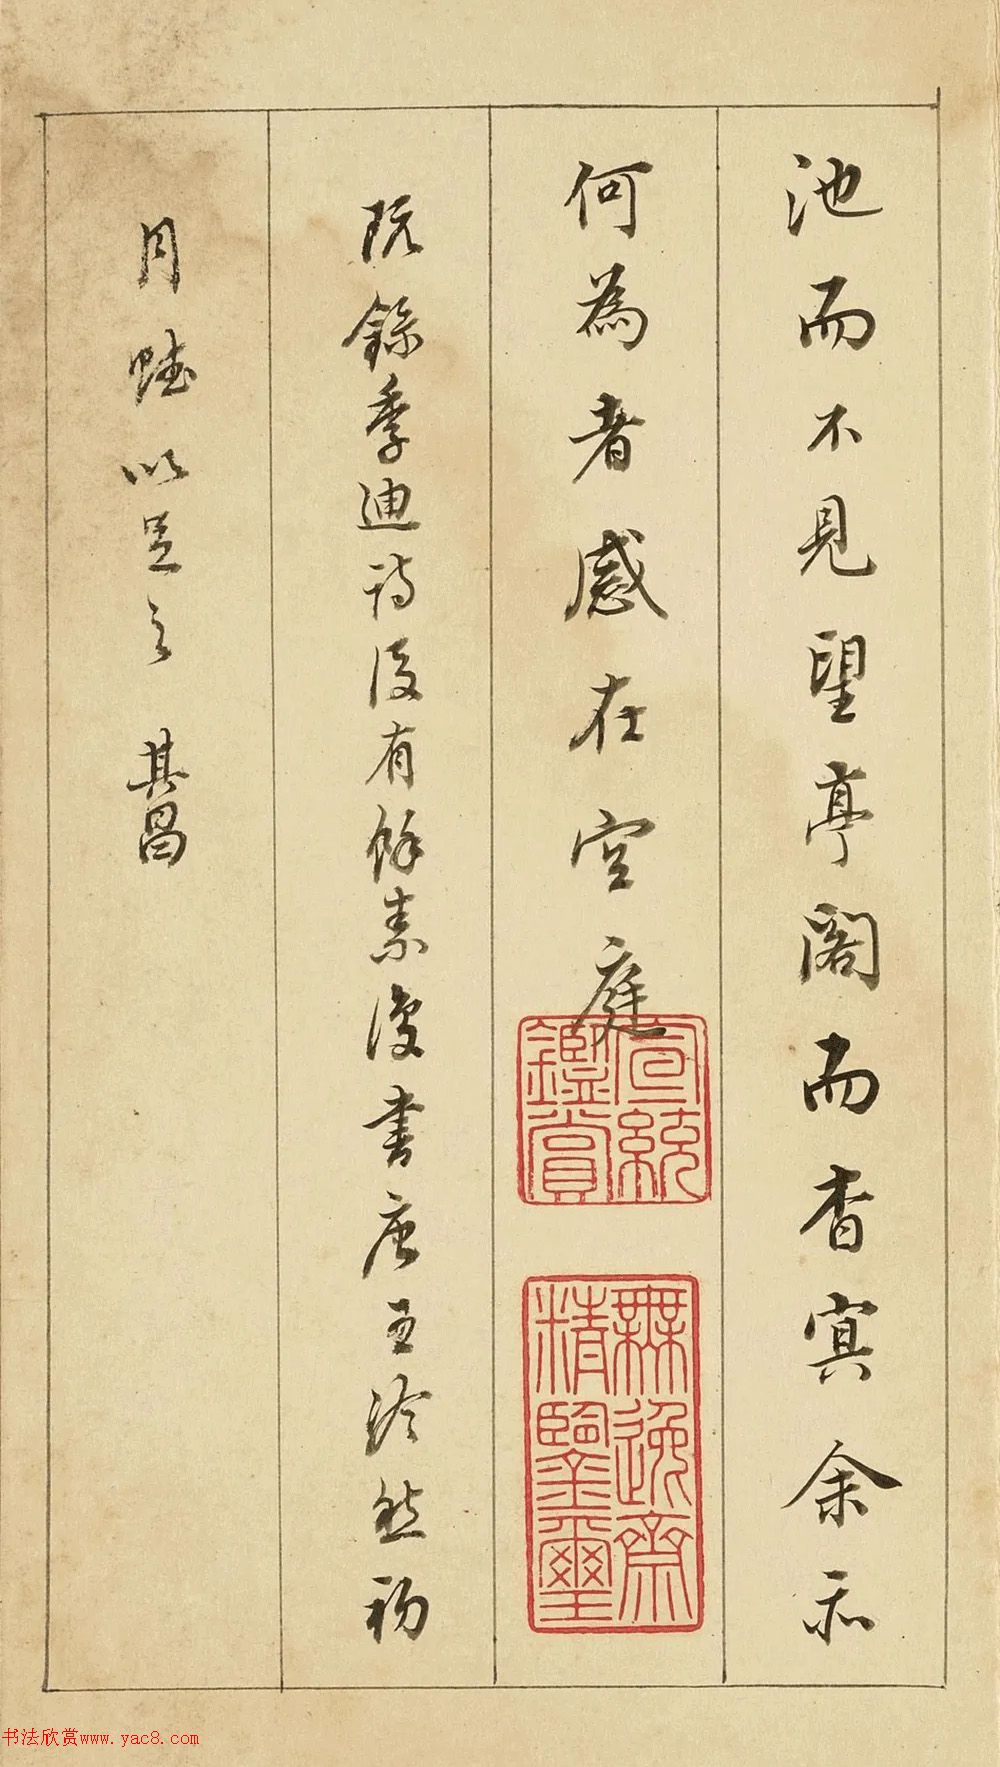 池而不見望亭閣而杳冥余亦
何為者感在空庭
既錄季迪詩後有餘素復書唐王泠然初
月賦以足之 其昌
宣統
鑑賞
無逸齋
精鑒璽
书法欣赏www.yac8.com